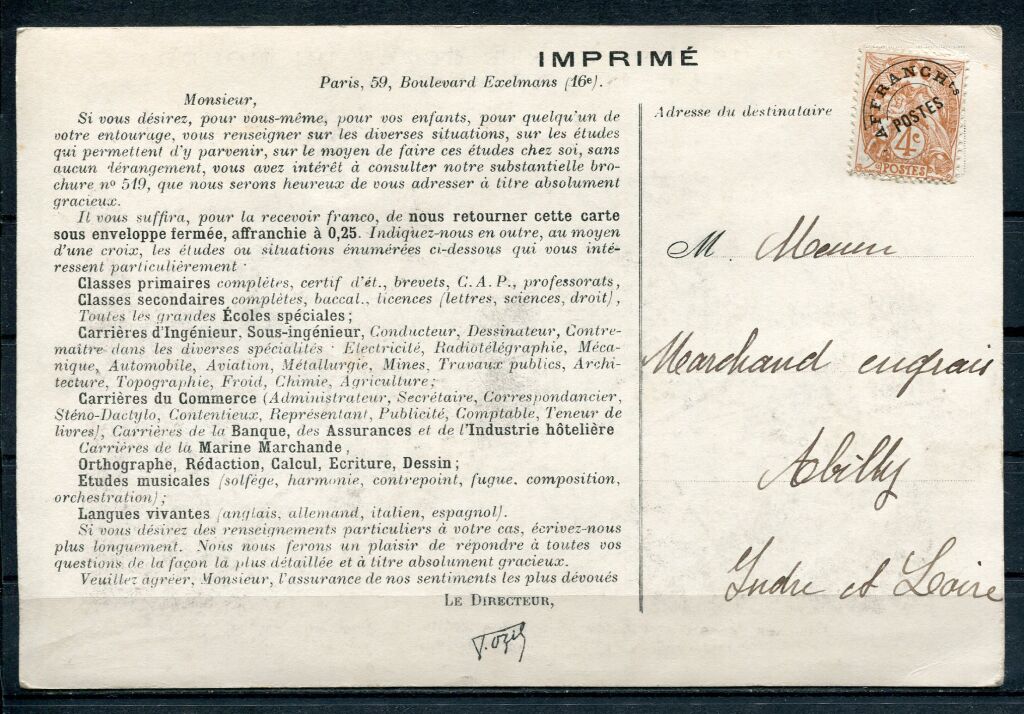 IMPRIMÉ
Paris, 59, Boulevard Exelmans (16e).
Monsieur,
Si vous désirez, pour vous-même, pour vos enfants, pour quelqu'un de
votre entourage, vous renseigner sur les diverses situations, sur les études
qui permettent d'y parvenir, sur le moyen de faire ces études chez soi, sans
aucun dérangement, vous avez intérêt à consulter notre substantielle bro-
chure nº 519, que nous serons heureux de vous adresser à titre absolument
gracieux.
Il vous suffira, pour la recevoir franco, de nous retourner cette carte
sous enveloppe fermée, affranchie à 0,25. Indiquez-nous en outre, au moyen
d'une croix, les études ou situations énumérées ci-dessous qui vous inté-
ressent particulièrement :
Classes primaires complètes, certif d'ét., brevets, C.A.P., professorats,
Classes secondaires complètes, baccal., licences (lettres, sciences, droit),
Toutes les grandes Écoles spéciales;
Carrières d'Ingénieur, Sous-ingénieur, Conducteur, Dessinateur, Contre-
maître dans les diverses spécialités : Electricité, Radiotélégraphie, Méca-
nique, Automobile, Aviation, Métallurgie, Mines, Travaux publics, Archi-
tecture, Topographie, Froid, Chimie, Agriculture;
Carrières du Commerce (Administrateur, Secrétaire, Correspondancier,
Sténo-Dactylo, Contentieux, Représentant, Publicité, Comptable, Teneur de
livres), Carrières de la Banque, des Assurances et de l'Industrie hôtelière
Carrières de la Marine Marchande,
Orthographe, Rédaction, Calcul, Ecriture, Dessin;
Etudes musicales (solfège, harmonie, contrepoint, fugue, composition,
orchestration);
Langues vivantes (anglais, allemand, italien, espagnol).
Si vous désirez des renseignements particuliers à votre cas, écrivez-nous
plus longuement. Nous nous ferons un plaisir de répondre à toutes vos
questions de la façon la plus détaillée et à titre absolument gracieux.
Veuillez agréer, Monsieur, l'assurance de nos sentiments les plus dévoués
LE DIRECTEUR,
Adresse du destinataire
AFFRANCHts
POSTES
4c
POSTES
M.
Marchand engrais
Abilly
Indre et Loire